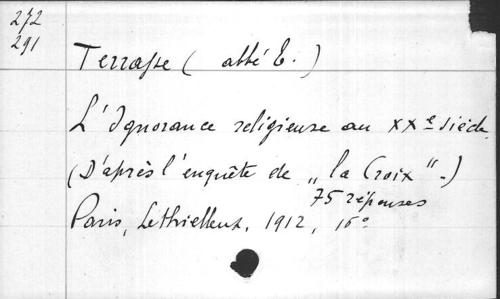 272
291
Terrasse (abbé E.)
L'Ignorance religieuse au XXe siècle
(D'après l'enquête de „la Croix“.)
75 réponses
Paris, Lethielleux, 1912, 16°